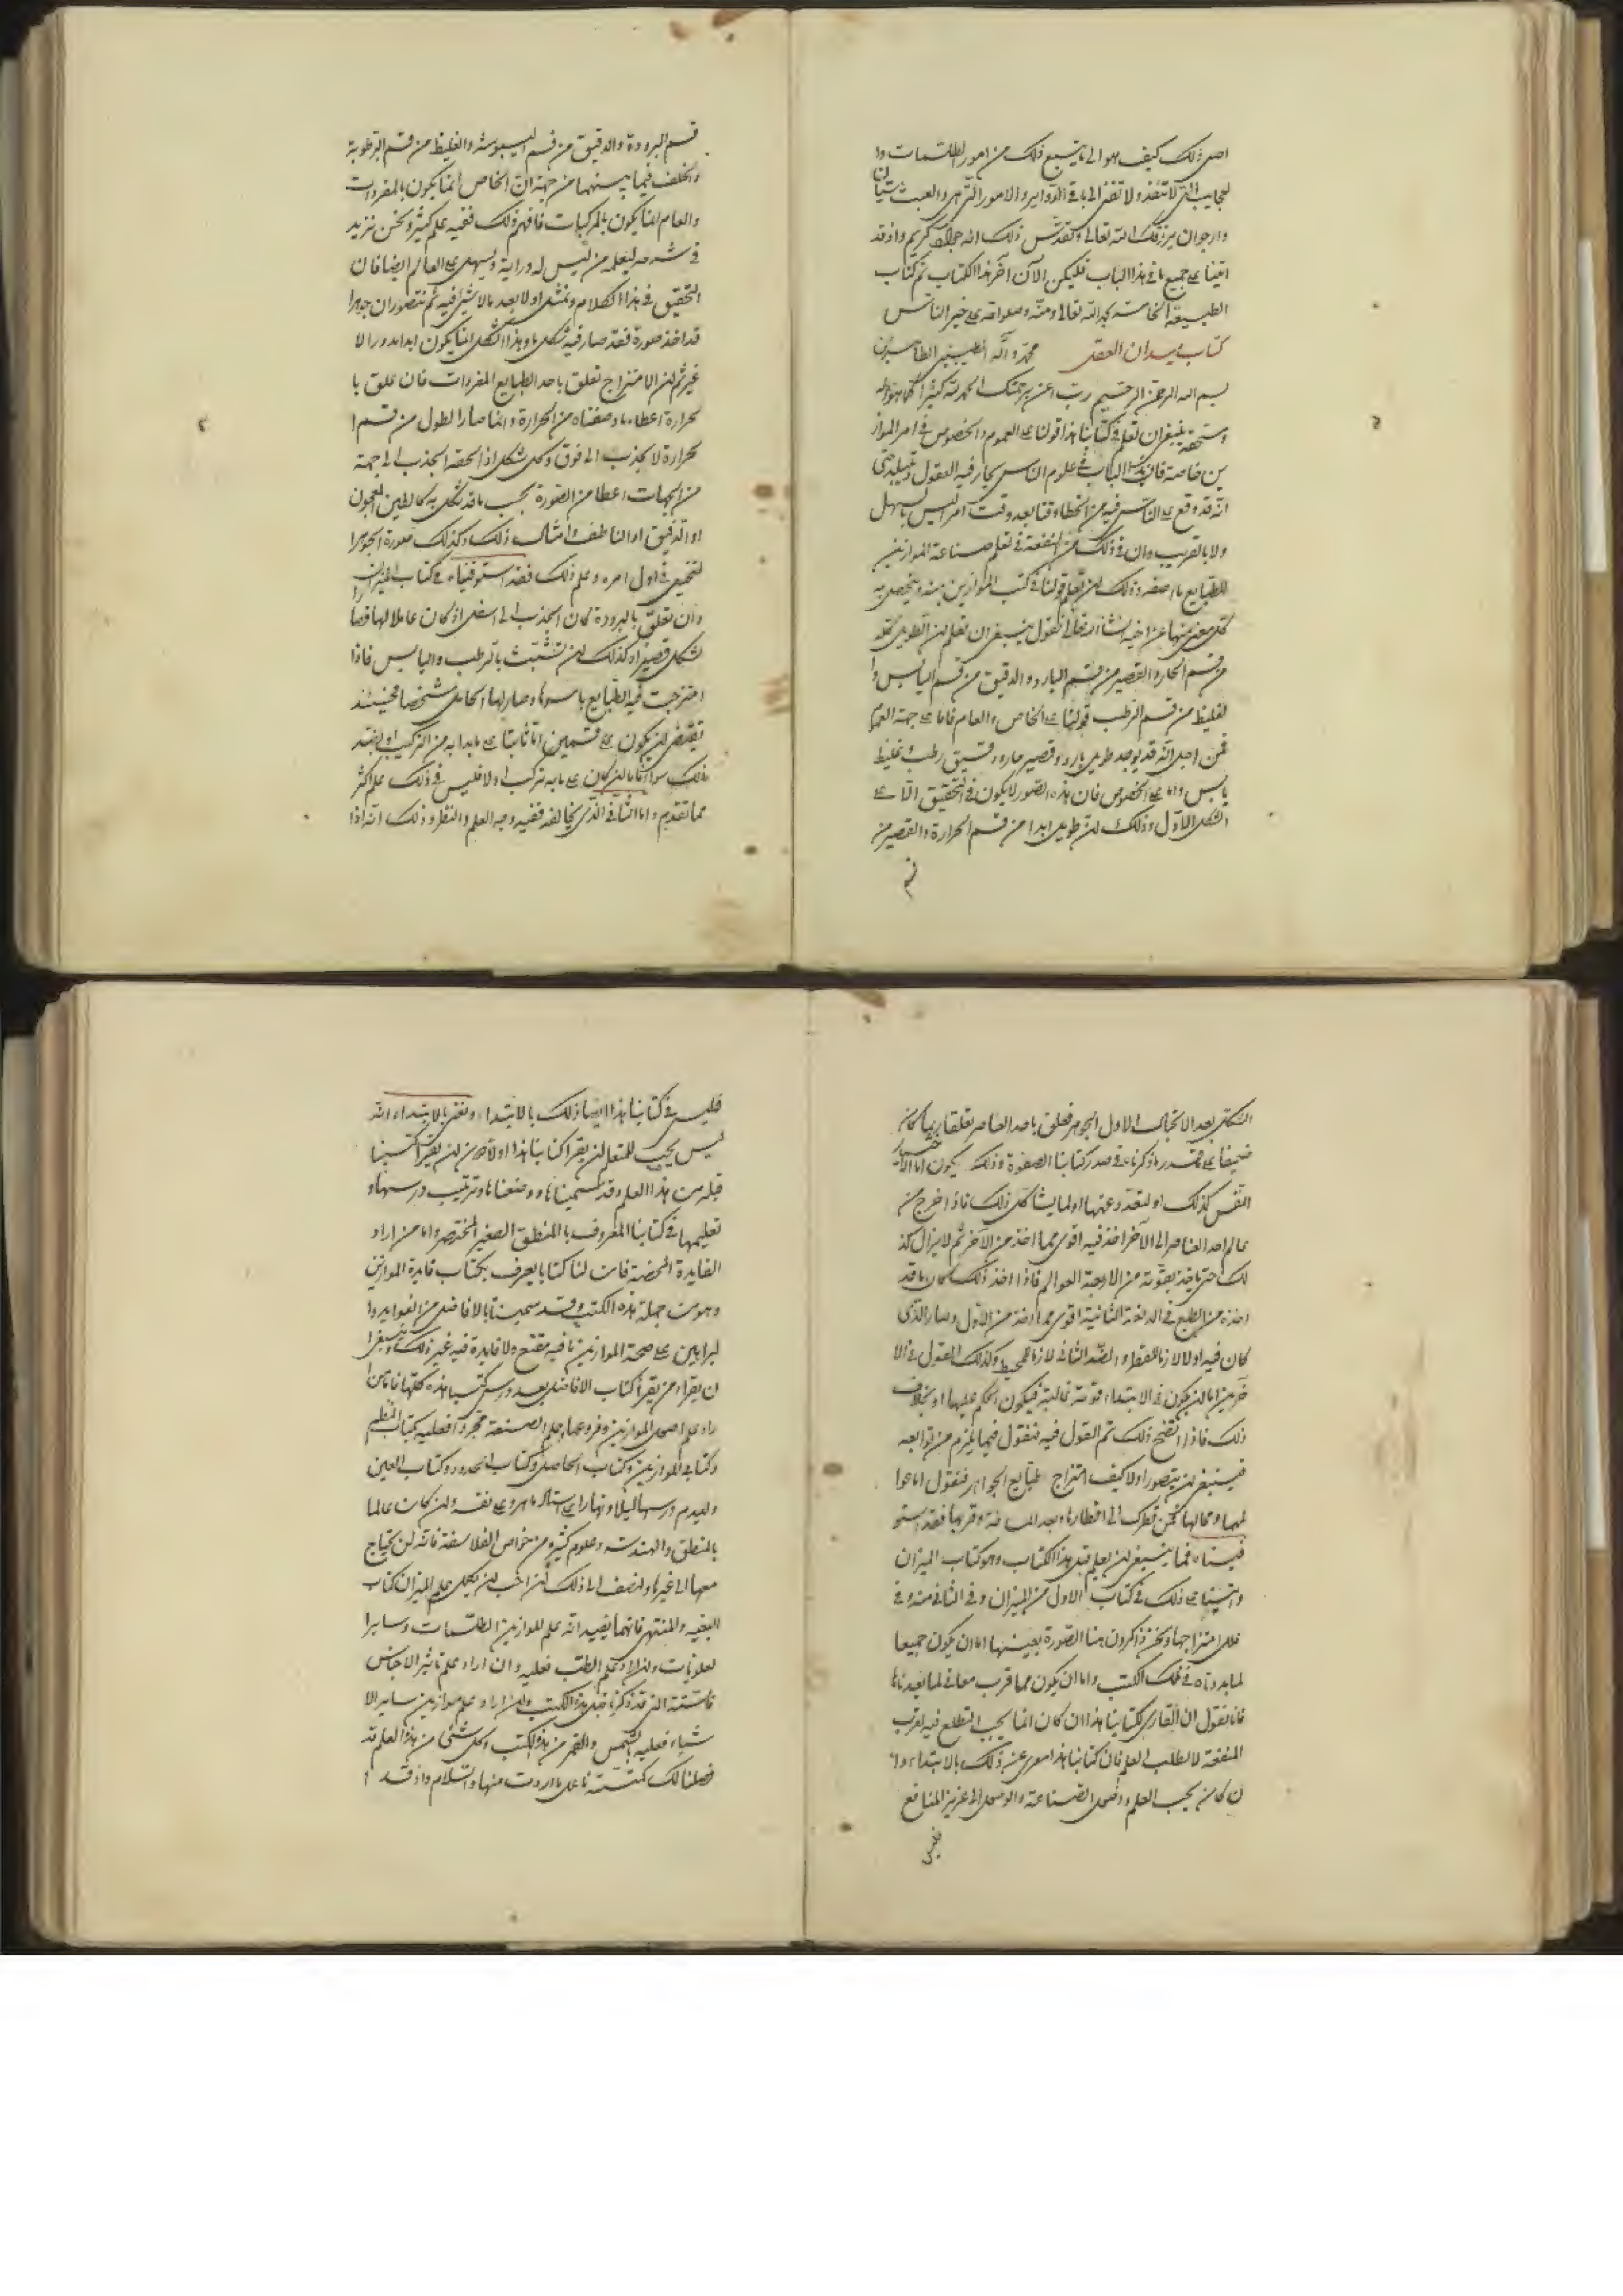 اصل ذلك كيف هو الى ما يتبع ذلك من امور الطلسمات وا
لعجايب التى لا تنفد ولا تفنى الى باقى الدواير والامور التى هى والعبث شيئان
وارجوان يرزقك الله تعالى وتقدس ذلك انه جواد كريم واذ قد
اتينا على جميع ما فى هذا الباب فليكن الآن آخر هذا الكتاب تم كتاب
الطبيعة الخامسة بحمد الله تعالى ومنه وصلواته على خير الناس
كتاب ميدان العقل محمد وآله الطيبين الطاهرين
بسم الله الرحمن الرحيم رب اعن برحمتك الحمد لله كثيرا كما هو اهله
ومستحقه ينبغى ان تعلم فى كتابنا هذا قولنا على العموم والخصوص فى امر المواز
ين خاصة فان هذا الباب فى علوم الناس يحار فيه العقول حتى
انه قد وقع على الناس فيه من الخطا وقتا بعد وقت امر ليس بالسهل
ولا بالقريب وان فى ذلك من المنفعة فى تعلم صناعة الموازين
للطبايع ما اصفه وذلك ان تعلم قولنا فى كتب الموازين
كل معنى منها عن اخيه ان شاء الله تعالى فنقول ينبغى ان تعلم ان الطويل كله
من قسم الحار والقصير من قسم البارد والدقيق من قسم اليابس وا
لغليظ من قسم الرطب قولنا على الخاص والعام فاما على جهة العموم
فمن اجل انه قد يوجد طويل بارد وقصير حار ودقيق رطب وغليظ
يابس واما على الخصوص فان هذه الصور لا يكون فى التحقيق الا على
الشكل الاول وذلك ان طويل ابدا من قسم الحرارة والقصير من
قسم
قسم البرودة والدقيق من قسم اليبوسة والغليظ من قسم الرطوبة
والخلف فيما بينهما من جهة ان الخاص انما يكون بالمفردات
والعام انما يكون بالمركبات فافهم ذلك ففيه علم كثير ونحن نزيد
فى شرحه ليعلمه من ليس له دراية ويسهل على العالم ايضا فان
التحقيق فى هذا الكلام وتمثل اولا بعد ما لا شىء فيه ثم تتصور ان جوهرا
قد اخذ صورة فقد صار فيه شكل ما وهذا الشكل انما يكون ابدا مدورا لا
غير ثم ان الامتزاج تعلق باحد الطبايع المفردات فان علق با
لحرارة اعطاه ما وصفناه من الحرارة وانما صار الطول من قسم ا
لحرارة لانجذب الى فوق وكل شكل اذا لحقه الجذب الى جهة
من الجهات اعطا من الصورة بحسب ما قد تشكل به كالطين المعجون
او الدقيق او الناطف وامثال ذلك وكذلك صورة الجوهر ا
لتحق فى اول امره وعلم ذلك فقد استوفيناه فى كتاب الميزان
وان تعلق بالبرودة كان الجذب الى اسفل اذ كان عاملا لها فصا
لشكل قصيرا وكذلك ان تشبثت بالرطب واليابس فاذا
امتزجت فيه الطبايع باسرها وصار لها الحامل شخصا فحينئذ
تقتضى ان يكون على قسمين اما ثابتا على ما بدا به من التركيب او بضد
ذلك سواء فاما ان كان على ما به تركب اولا فليس فى ذلك علم اكثر
مما تقدم واما الثانى الذى يخالفه ففيه وجه العلم والنظر وذلك انه اذا
الشكل بعد الاول الجوهر فعلق باحد العناصر تعلقا
ضعيفا على قدر ما ذكرناه فى صدر كتابنا الصفوة وذلك يكون اما
النفس كذلك او لتعدد عنها او لما يشاكل ذلك فاذا خرج من
عالم احد العناصر الى الآخر اخذ فيه اقوى مما اخذ من الآخر ثم لا يزال كذ
لك حتى ياخذ بقوته من الاربعة العوالم فاذا اخذ ذلك كان ما قد
اخذه من الطبع فى الدفعة الثانية اقوى مما اخذه من الاول وصار الذى
كان فيه اولا لازما للقطر والضد الثانى لازما للمحيط وكذلك القول فى الا
خرين اما ان يكون فى الابتداء قوته غالبة فيكون الحكم عليها او بخلاف
ذلك فاذا اتضح ذلك تم القول فيه فنقول فيما يلزم من توابعه
فينبغى ان يتصور اولا كيف امتزاج طبايع الجواهر فنقول اما عوا
لمها ومحالها فمن قطرك الى اقطارها وبعد المسافة وقربها فقد استو
فيناه فما ينبغى ان يعلم قبل هذا الكتاب وهو كتاب الميزان
واتينا على ذلك فى كتاب الاول من الميزان وفى الثانى منه وفى
علل امتزاجها ونحن ذاكرون هنا الصورة بعينها اما ان يكون جميعا
لما بددناه فى تلك الكتب واما ان يكون مما قرب معانى لما بعيدناها
فانا نقول ان القارى لكتابنا هذا ان كان انما يجب التطلع فيه لقرب
المنفعة لا لطلب العلم فان كتابنا هذا معرى عن ذلك بالابتداء وا
ن كان يحب العلم واصل الصناعة والوصول الى عزيز المنافع
فليس
فليس فى كتابنا هذا ايضا ذلك بالابتداء ونعنى بالابتداء انه
ليس يجب للمتعلم ان يقرا كتابنا هذا اولا دون ان يقرا كتبنا
قبله من هذا العلم وقد سميناها ووضعناها وترتيب درسها و
تعليمها فى كتابنا المعروف بالمنطق الصغير المختصر واما من اراد
الفايدة المحضة فان لنا كتابا يعرف بكتاب فايدة الموازين
وهو من جملة هذه الكتب وقد سميناه بالافاضل من الفوايد وا
لبراهين على صحة الموازين ما فيه مقنع ولا فايدة فيه غير ذلك وينبغى ا
ن يقراه من يقرا كتاب الافاضل بعد درس كتبنا هذه كلها فاما من ا
راد علم اصول الموازين وفروعها جل الصنعة مجردا فعليه بكتاب النظم
وكتاب الموازين وكتاب الحاصل وكتاب الحدود وكتاب العين
وليدم درسها ليلا ونهارا على استاد ماهر وعلى نفسه وان كان عالما
بالمنطق والهندسة وعلوم كثيرة من خواص الفلاسفة فانه لن يحتاج
معها الى غيرها ولنضف الى ذلك لمن احب ان يكمل علم الميزان كتاب
البغية والمنتهى فانهما يفيدانه علم الموازين الطلسمات وساير ا
لعلويات وان اراد علم الطب فعليه وان اراد علم تاثير الاجناس
فالستة التى قد ذكرناها قبل هذه الكتب وان اراد علم موازين ساير الا
شياء فعليه بالشمس والقمر من هذه الكتب وكل شىء من هذا العلم قد
فصلنا لك كتبته فاعمل ما اردت منها والسلام واذ قد ا